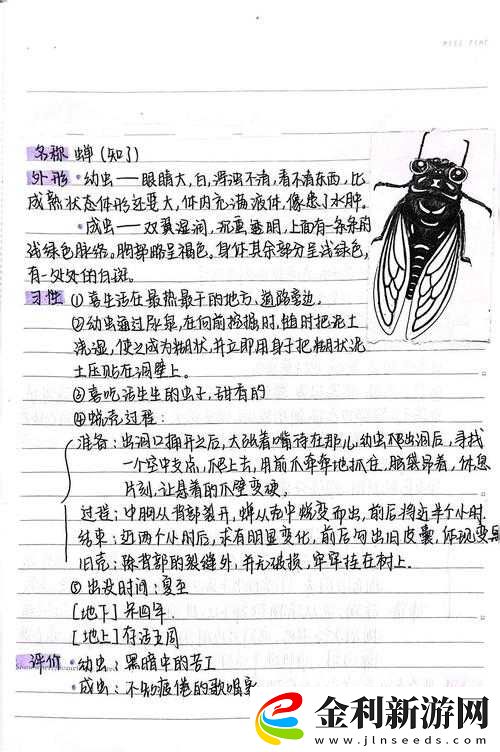 名称 蝉(知了)
外形 •幼虫——眼睛大,白,浑浊不清,看不清东西,比
成熟状态体形还要大,体内充满液体,像患了水肿。
•成虫——双翼湿润,沉重透明,上面有一条条的
浅绿色脉络。胸部略呈褐色。身体其余部分呈浅绿色,
有一处处的白斑。
习性 ①喜生活在最热最干的地方,道路旁边,
②幼虫通过尿泉,在向前挖掘时,随时把泥土
浇湿,使之成为糊状,并立即用身子把糊状泥
土压贴在洞壁上。
③喜吃活生生的虫子,甜香的
④蜕壳过程:
准备:出洞口捅开之后,大敞着嘴待在那儿,幼虫爬出洞后,寻找
一个空中支点,爬上去,用前爪牢牢地抓住,脑袋昂着,休息
片刻,让悬着的爪壁变硬。
过程:中胸从背部裂开,蝉从壳中蜕变而出,前后将近半个小时.
结束:近两个小时后,末有明显变化,前后勾出旧皮囊,体现变
旧壳:除背部的裂缝外,并无破损,牢牢挂在树上.
⑤出没时间:夏至
[地下]呆四年.
[地上]存活五周
评价 •幼虫:黑暗中的苦工
•成虫:不知疲倦的歌唱家
金利新游网
www.jlnseeds.com